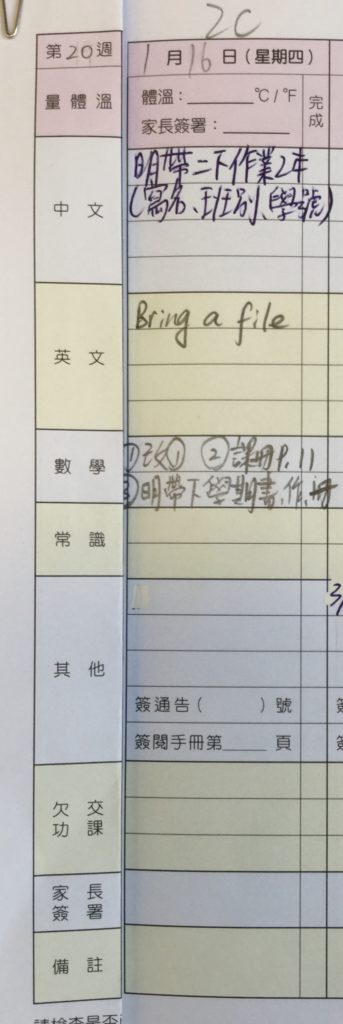 2C
第20週
1月16日(星期四)
量體溫
體溫:______℃/℉
家長簽署:______
完成
中文
明帶二下作業2本
(寫名、班別、學號)
英文
Bring a file
數學
①改① ②課冊P.11
③明帶下學期書、作、冊
常識
其他
3/
簽通告( )號
簽閱手冊第____頁
欠交功課
家長簽署
備註